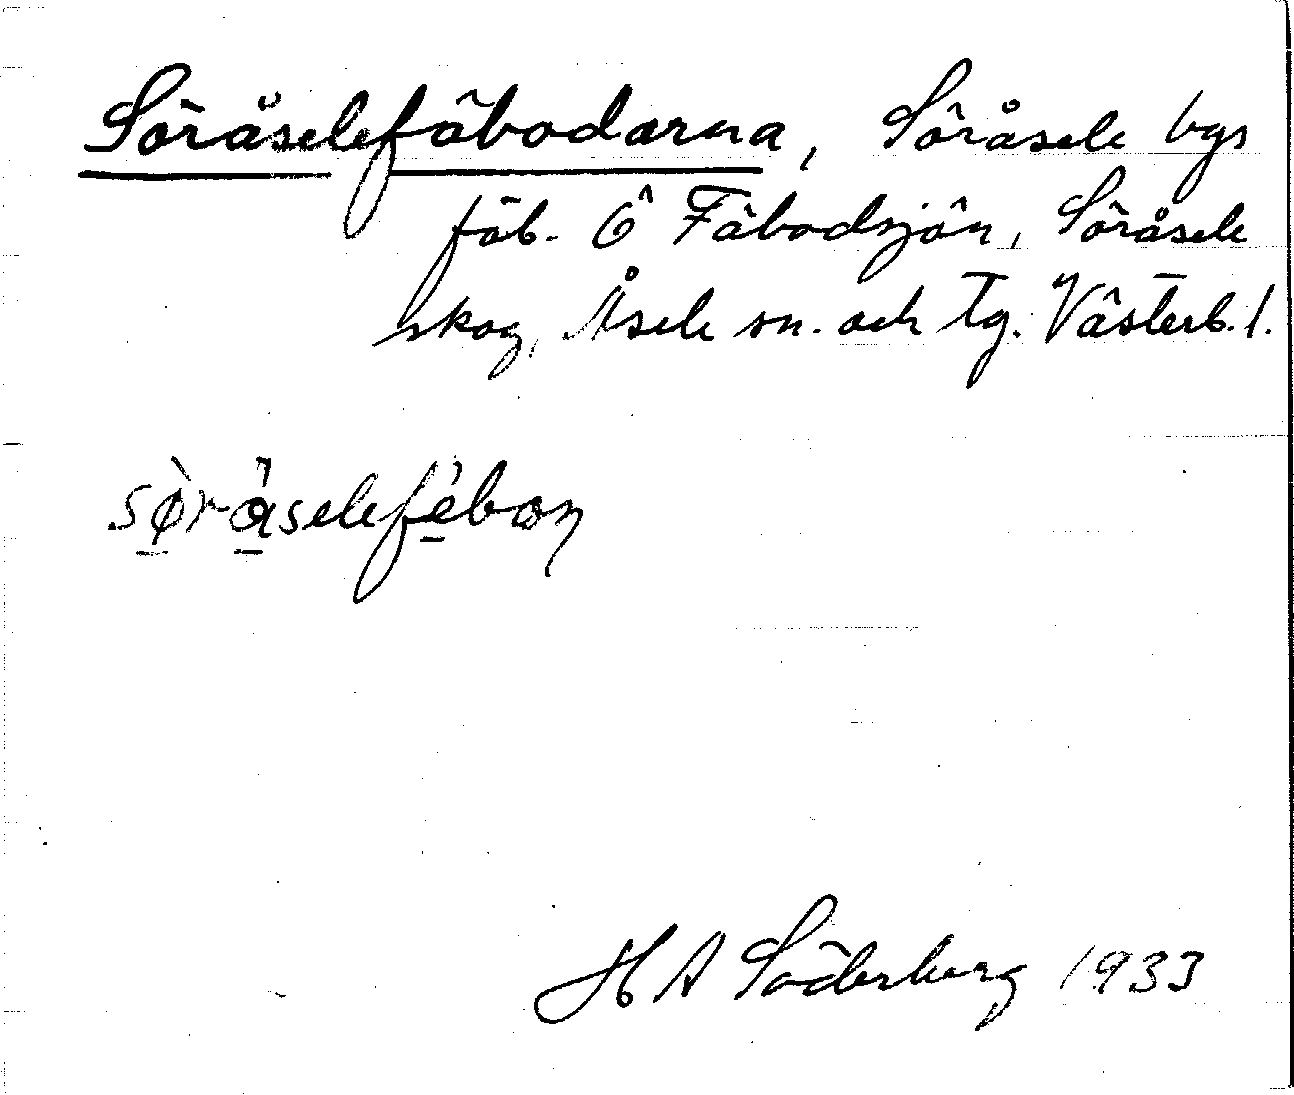 Söråselefäbodarna, Söråsele bys
fäb. Ö Fäbodsjön, Söråsele
skog, Åsele sn. och tg. Västerb. l.
sø̀råselefébon
H A Söderberg 1933